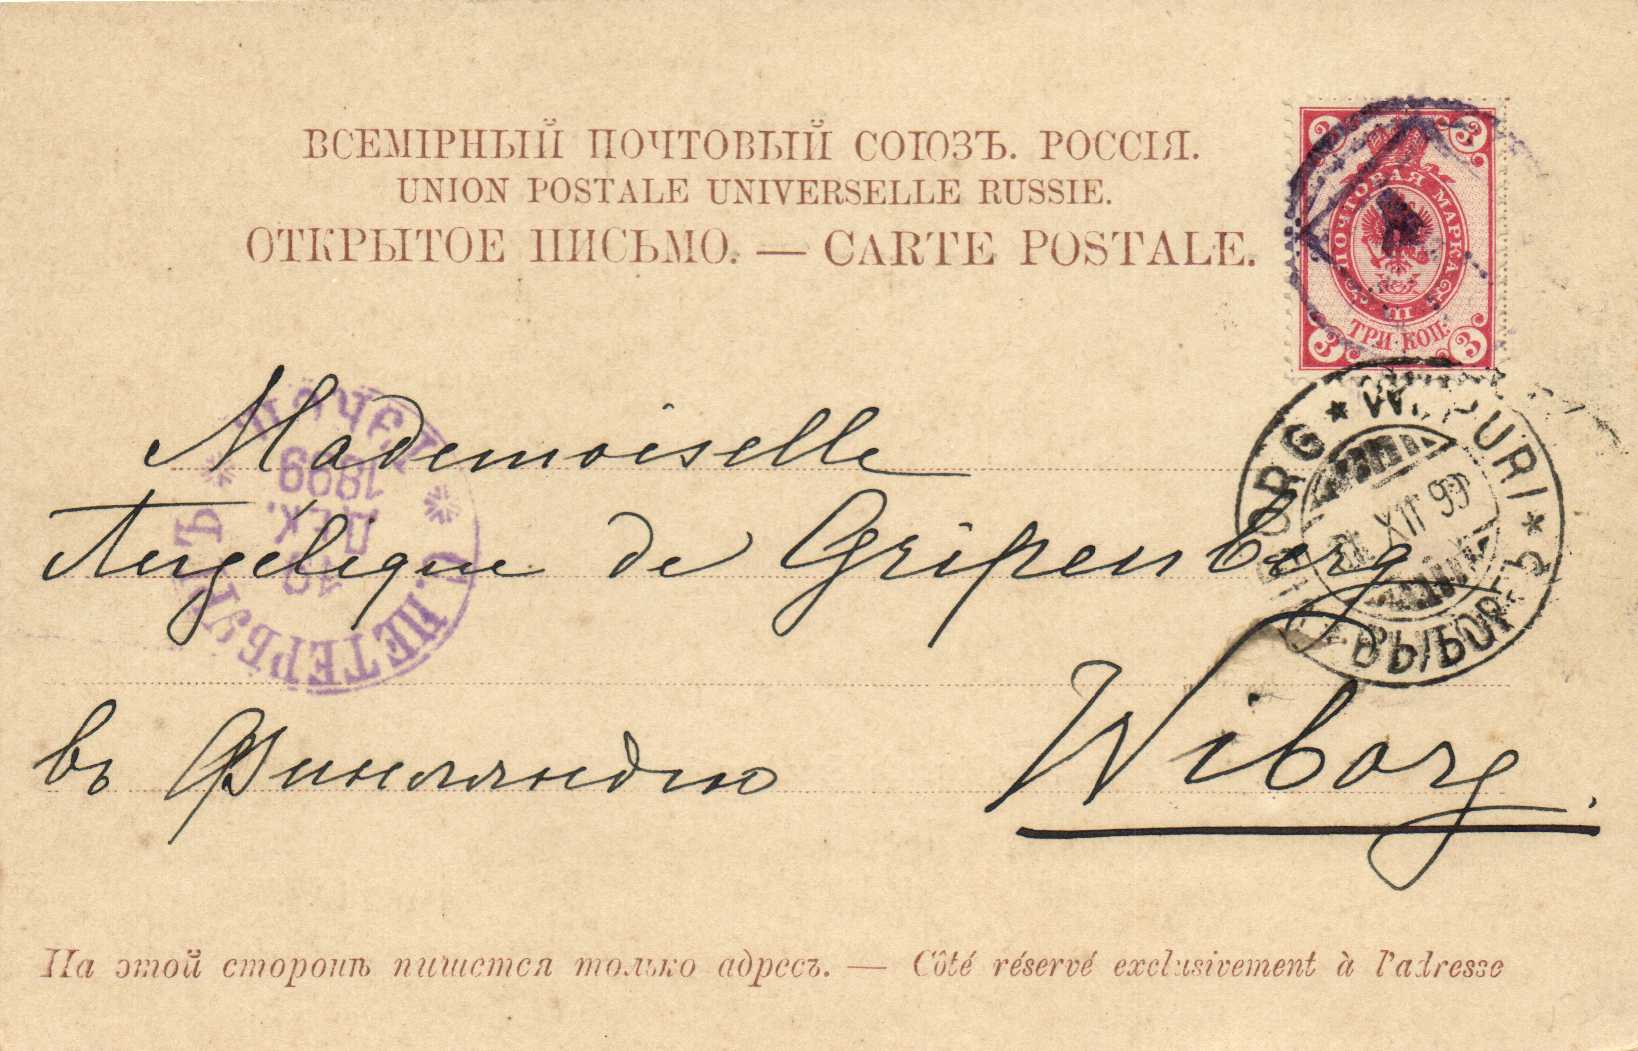 ВСЕМІРНЫЙ ПОЧТОВЫЙ СОЮЗЪ. РОССІЯ.
UNION POSTALE UNIVERSELLE RUSSIE.
ОТКРЫТОЕ ПИСЬМО. — CARTE POSTALE.
3 3
ПОЧТОВАЯ МАРКА
ТРИ КОП.
3 3
WIPURI
BORG
XII 99
ВЫБОРГЪ
С. ПЕТЕРБУРГЪ
ДЕК.
1899
Mademoiselle
Angélique de Gripenberg
Wiborg.
въ Финляндію
На этой сторонѣ пишется только адресъ. — Côté réservé exclusivement à l'adresse